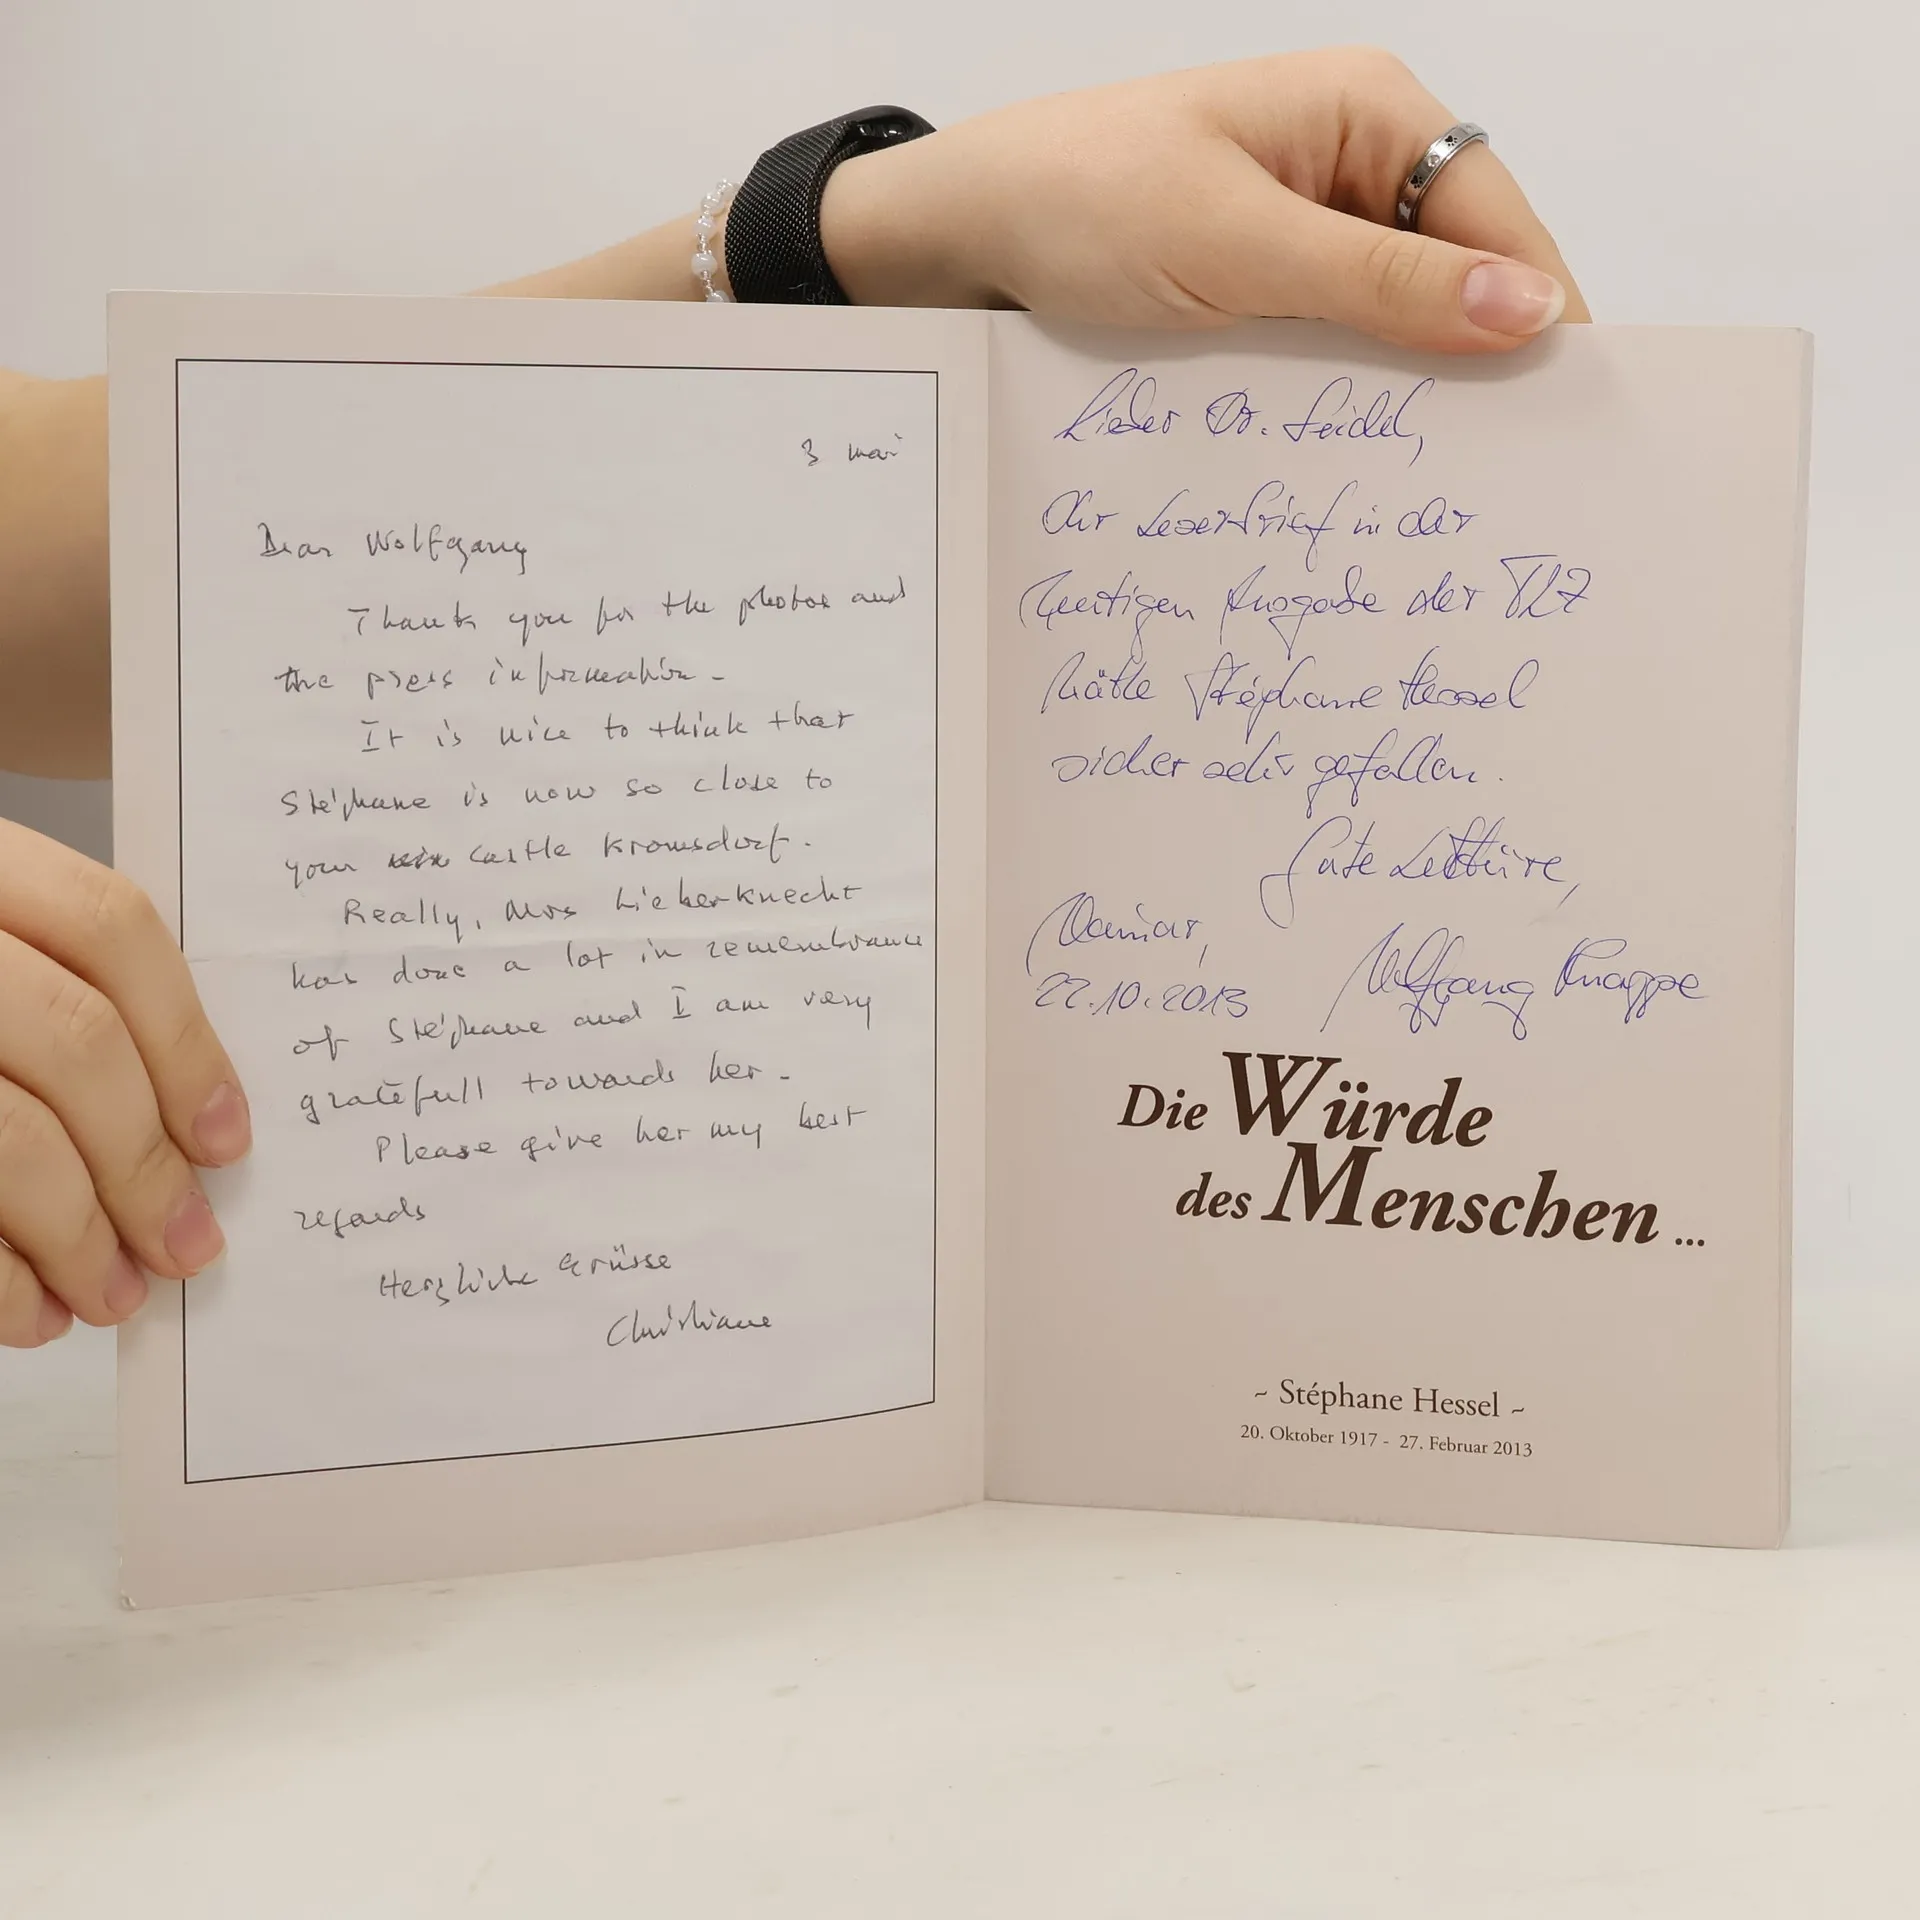 3 mai
Dear Wolfgang
Thank you for the photos and
the press information.
It is nice to think that
Stéphane is now so close to
your castle Kromsdorf.
Really, Mrs Lieberknecht
has done a lot in remembrance
of Stéphane and I am very
gratefull towards her.
Please give her my best
regards
Herzliche Grüsse
Christiane
Lieber Dr. Seidel,
Ihr Leserbrief in der
heutigen Ausgabe der TLZ
hätte Stéphane Hessel
sicher sehr gefallen.
Gute Lektüre,
Weimar,
22.10.2013
Wolfgang Knappe
Die Würde
des Menschen ...
~ Stéphane Hessel ~
20. Oktober 1917 - 27. Februar 2013